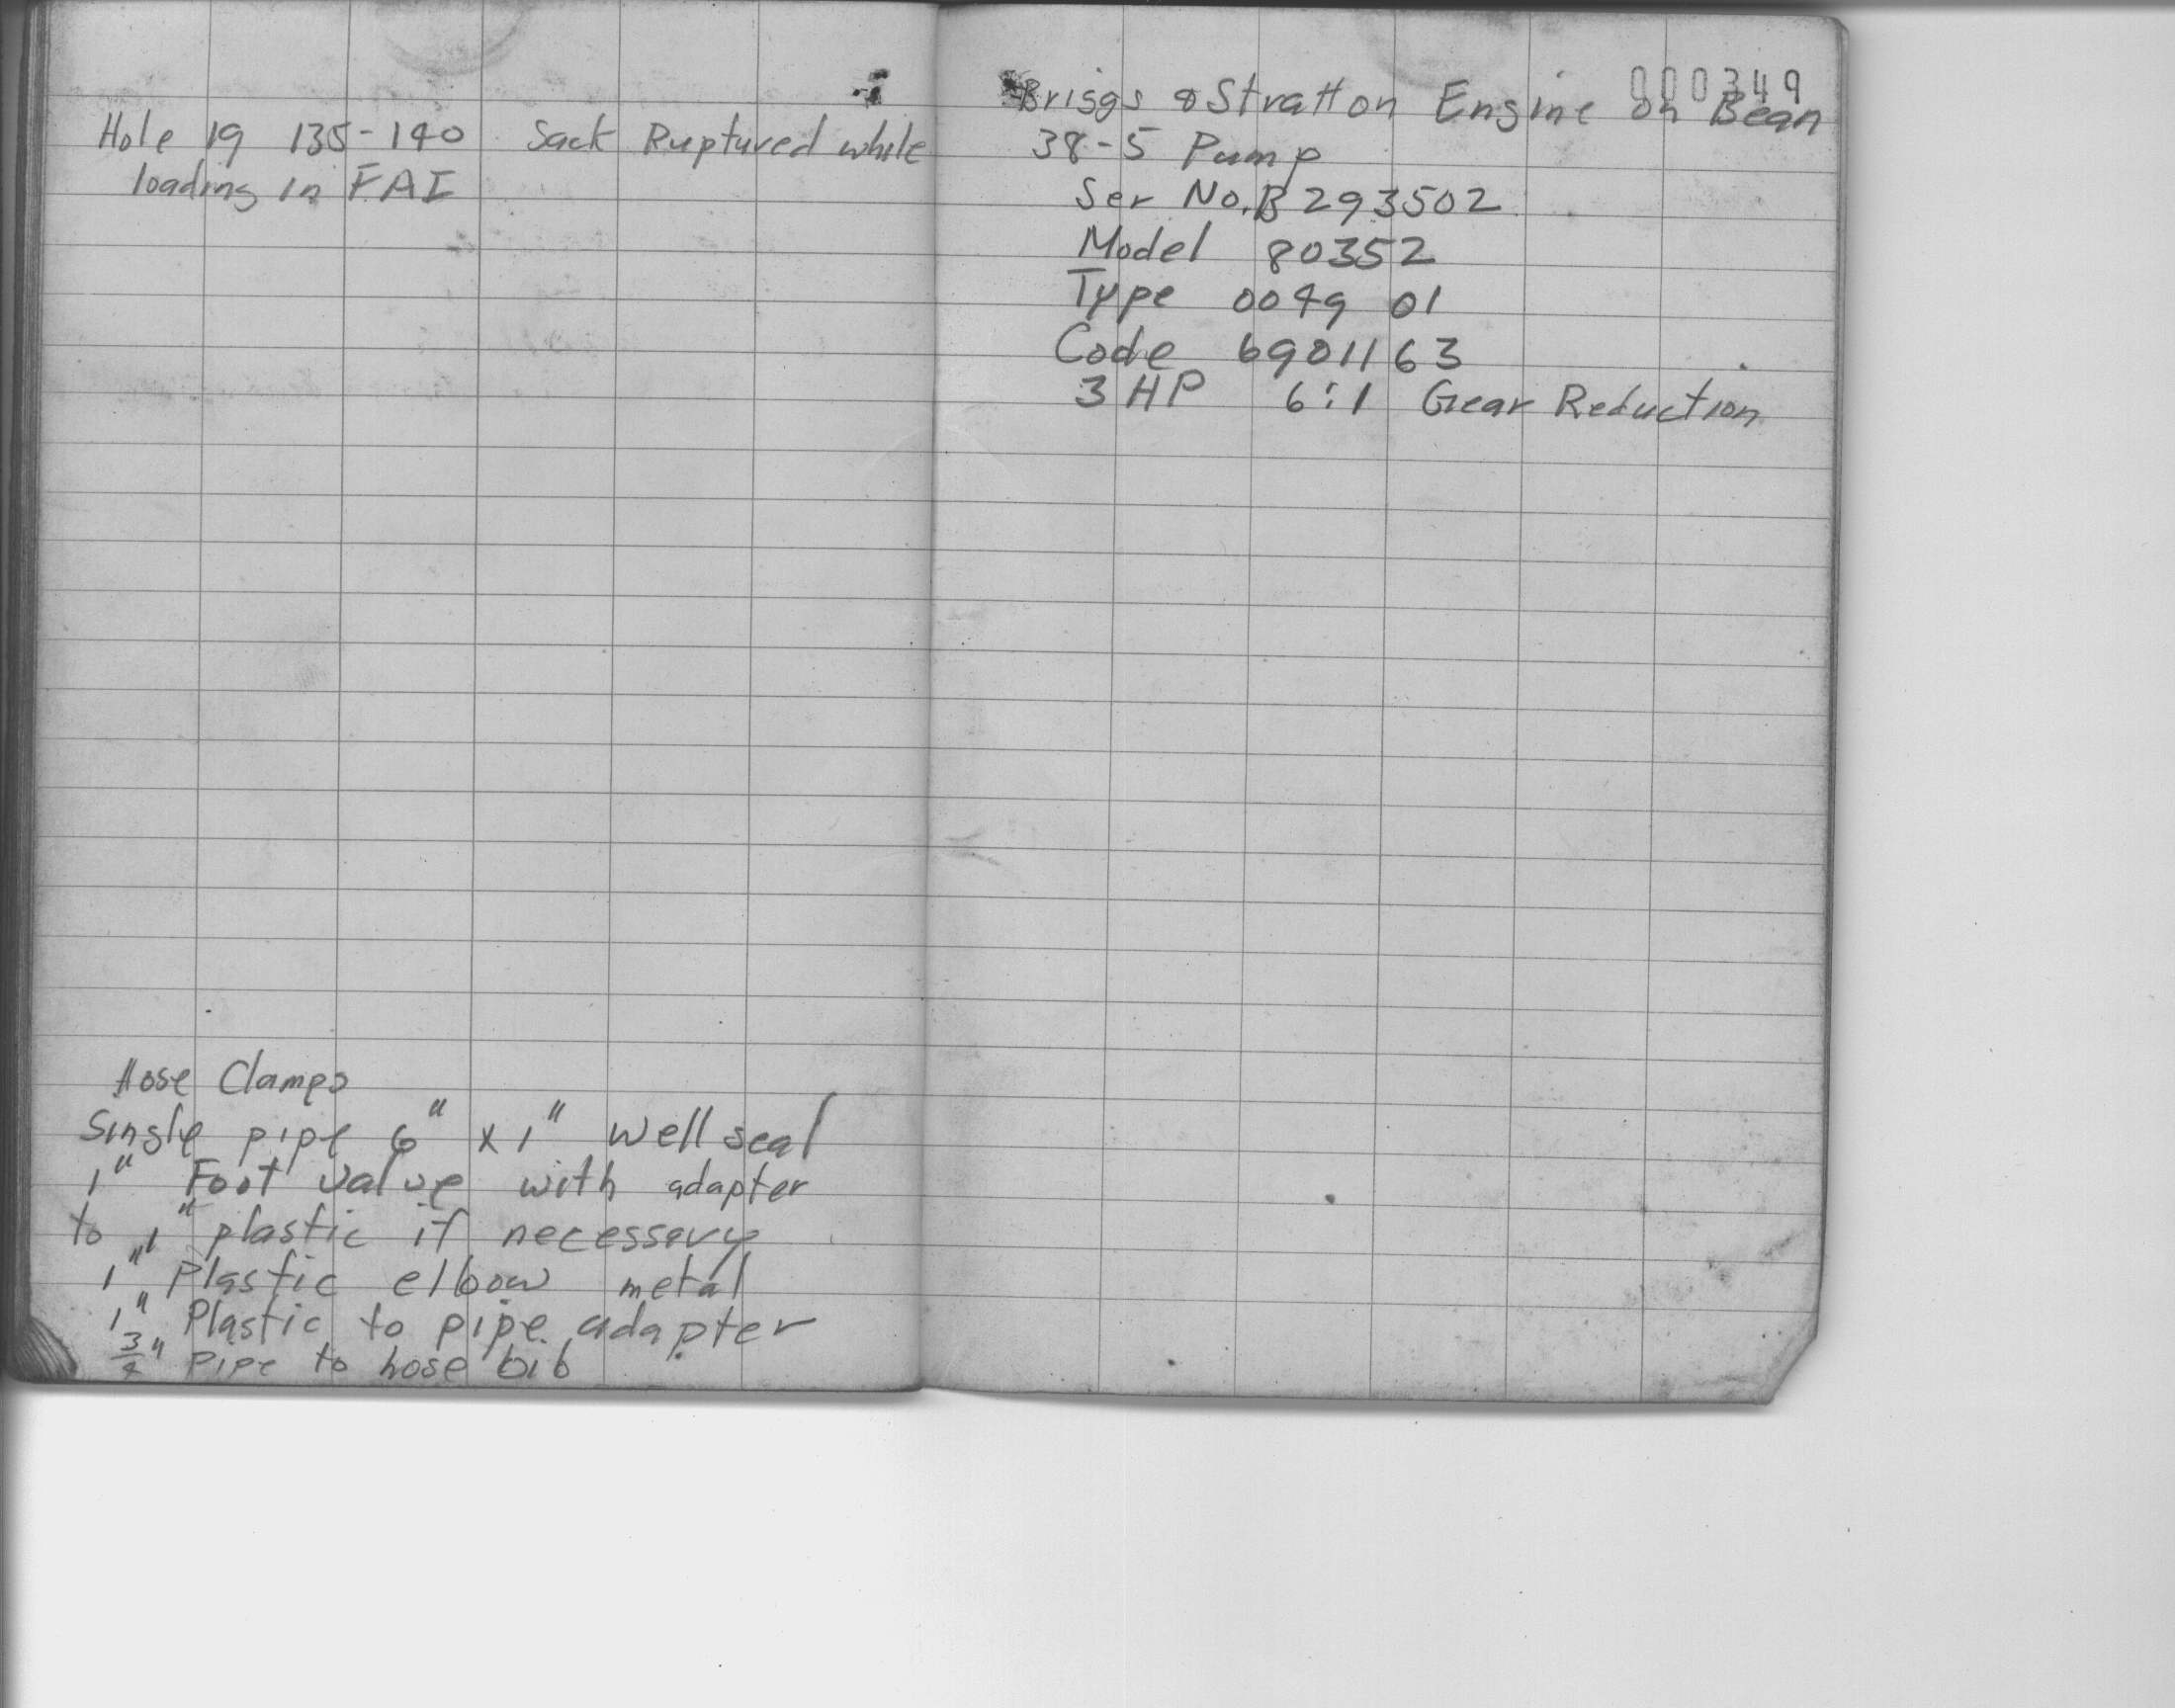 Hole 19 135-140 Sack Ruptured while
loading in FAI
Hose Clamps
Single pipe 6" x 1" well seal
1" Foot valve with adapter
to 1" plastic if necessary
1" Plastic elbow metal
1" Plastic to pipe adapter
3/4" Pipe to hose bib
000349
Briggs & Stratton Engine on Bean
38-5 Pump
Ser No. B 293502
Model 80352
Type 0049 01
Code 6901163
3 HP 6:1 Gear Reduction